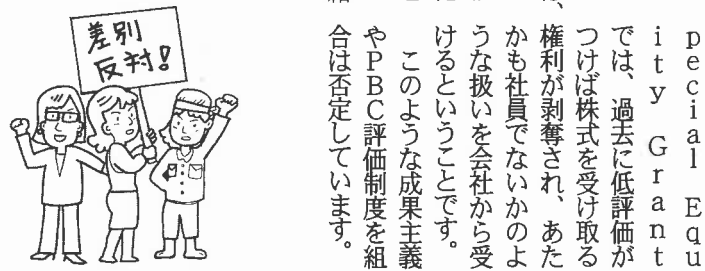 差別
反対！
pecial Equ
ity Grant
では、過去に低評価が
つけば株式を受け取る
権利が剥奪され、あた
かも社員でないかのよ
うな扱いを会社から受
けるということです。
このような成果主義
やPBC評価制度を組
合は否定しています。